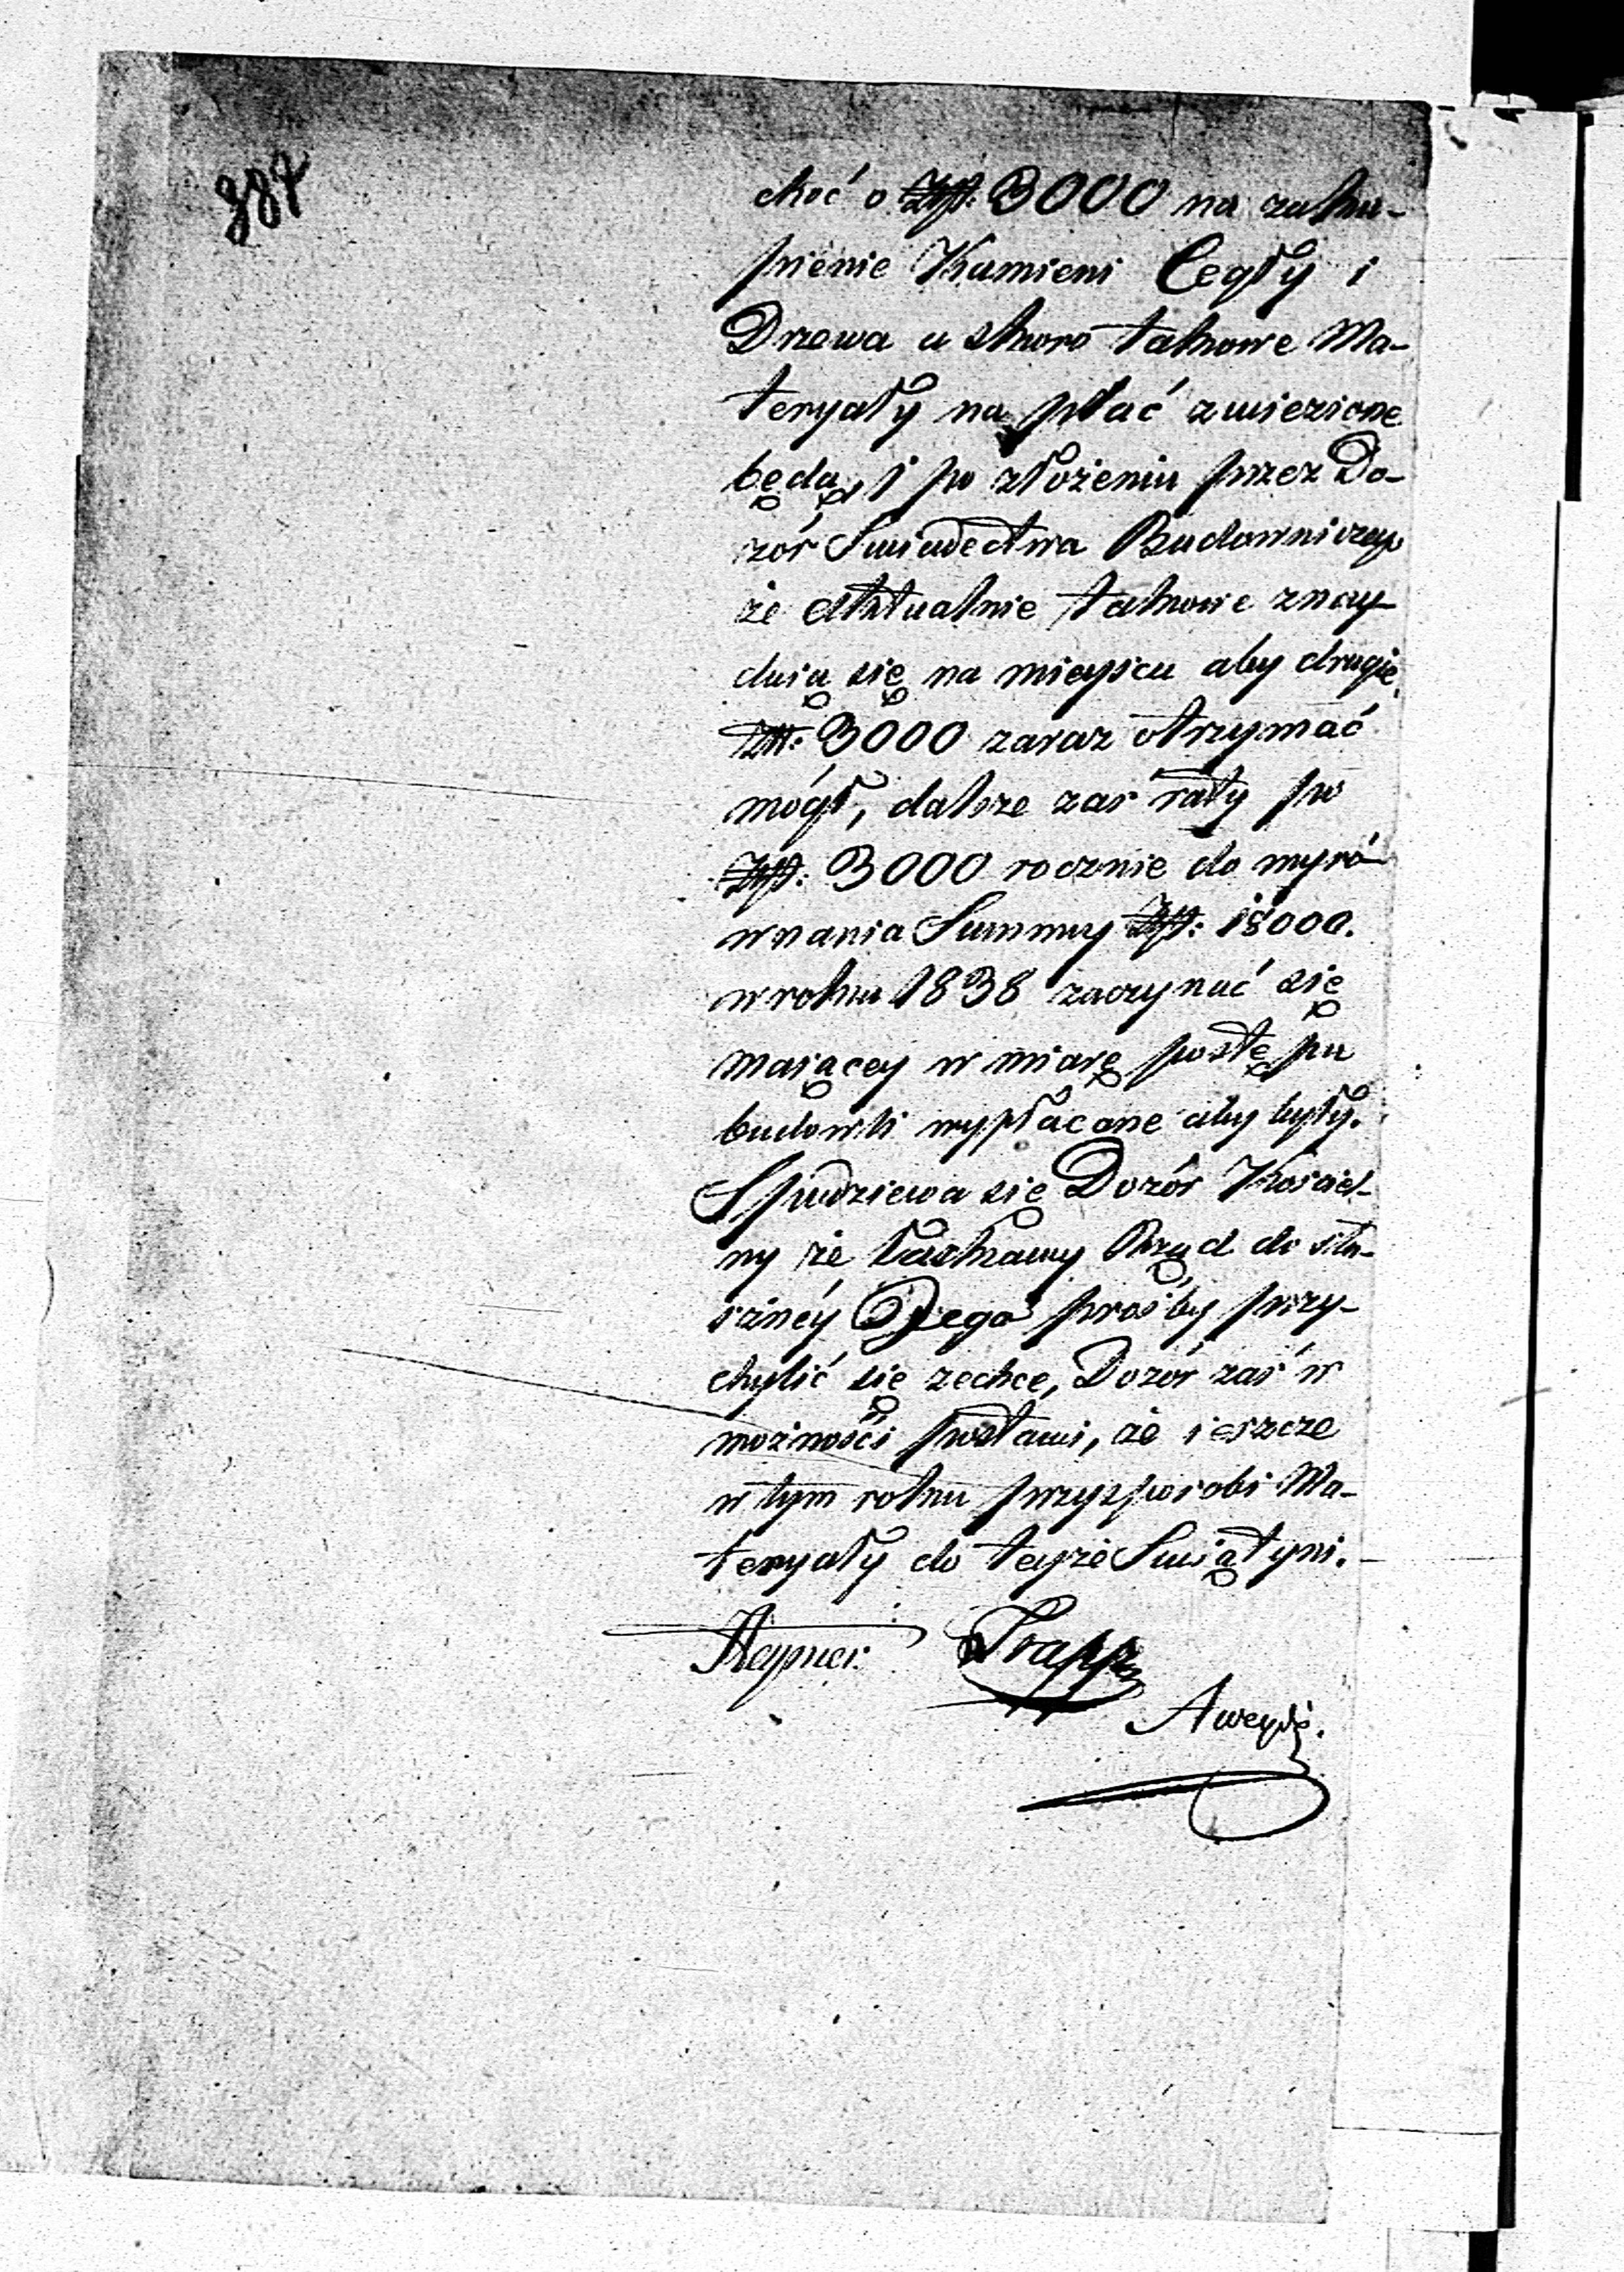 387
choć o Złp: 3000 na zaku-
pienie Kamieni Cegły i
Drzewa a skoro takowe Ma-
teryały na płać zwiezione
będą, i po złożeniu przez Do-
zór Swiadectwa Budowniczego
że aktualnie takowe znay-
duią się na mieyscu aby drugie
Złł: 3000 zaraz otrzymać
mógł, dalsze zas raty po
Złp: 3000 rocznie do wyró-
wnania Summy Złp: 18000.
w roku 1838 zaczynać się
maiącey w miarę postępu
budowli wypłacane aby były.
Spodziewa się Dozór Kosciel-
ny że Łaskawy Rząd do słu-
sznéy Jego prośby przy-
chylić się zechce, Dozór zaś w
możnośći postawi, że ieszcze
w tym roku przysposobi Ma-
teryały do teyże Swiątyni.
Trapp